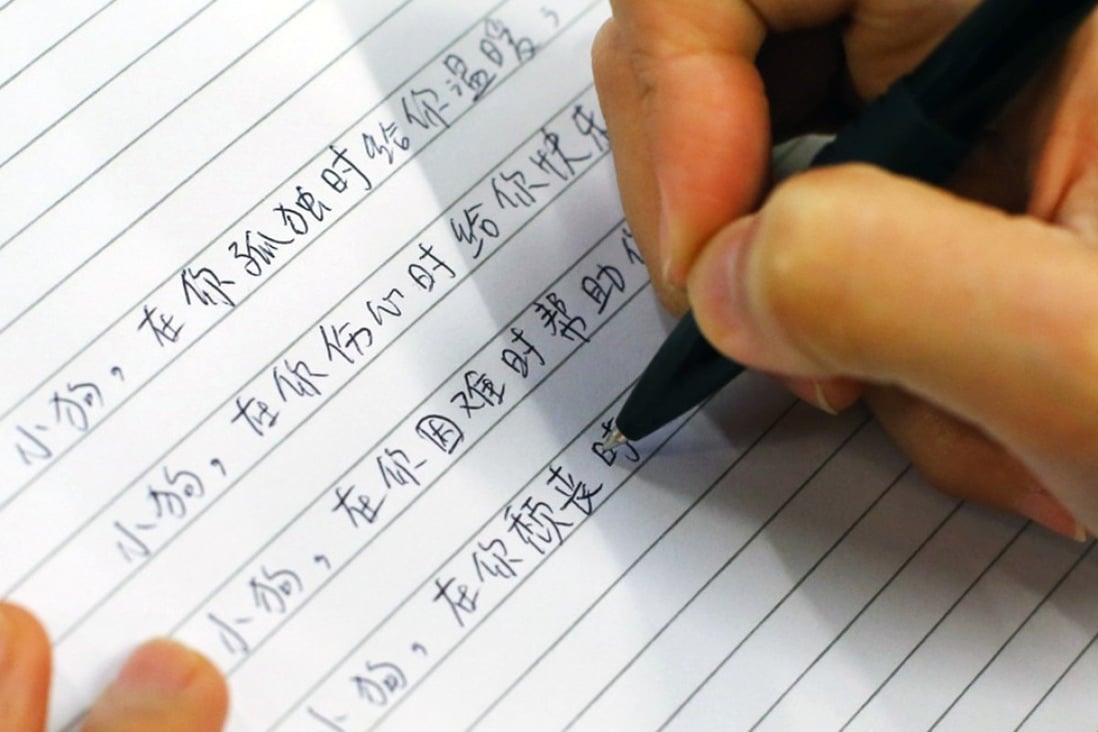 小狗，在你孤独时给你温暖；
小狗，在你伤心时给你快乐
小狗，在你困难时帮助
小狗，在你颓丧时